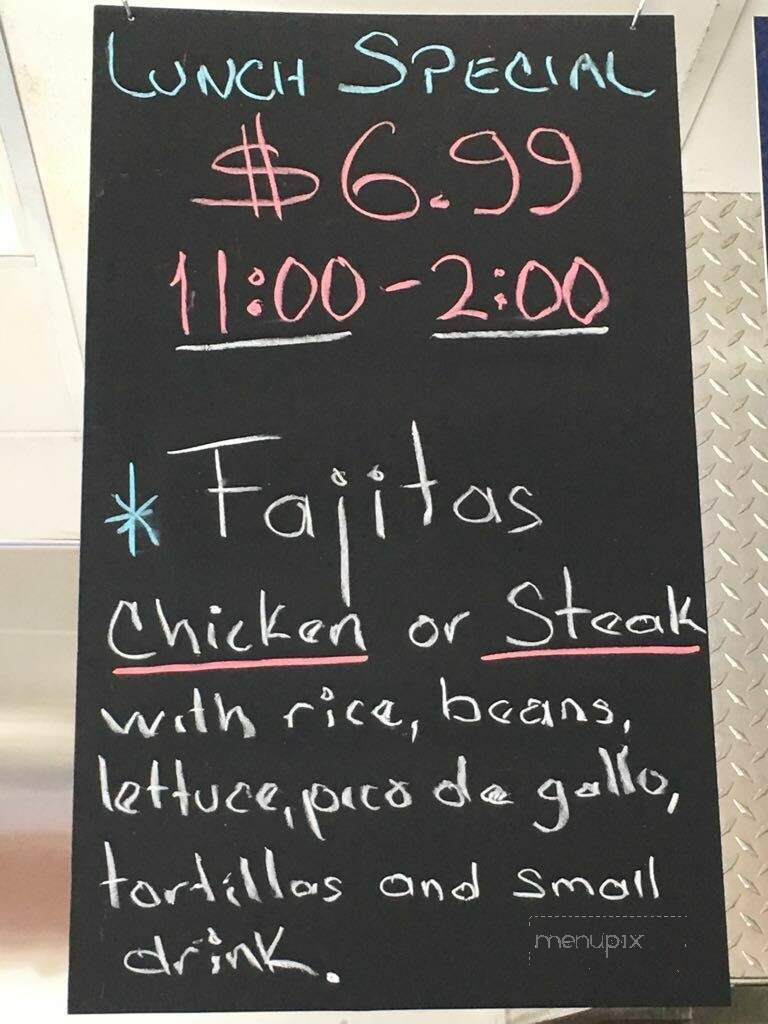 LUNCH SPECIAL
$6.99
11:00 - 2:00
* Fajitas
Chicken or Steak
with rice, beans,
lettuce, pico de gallo,
tortillas and small
drink.
menupix